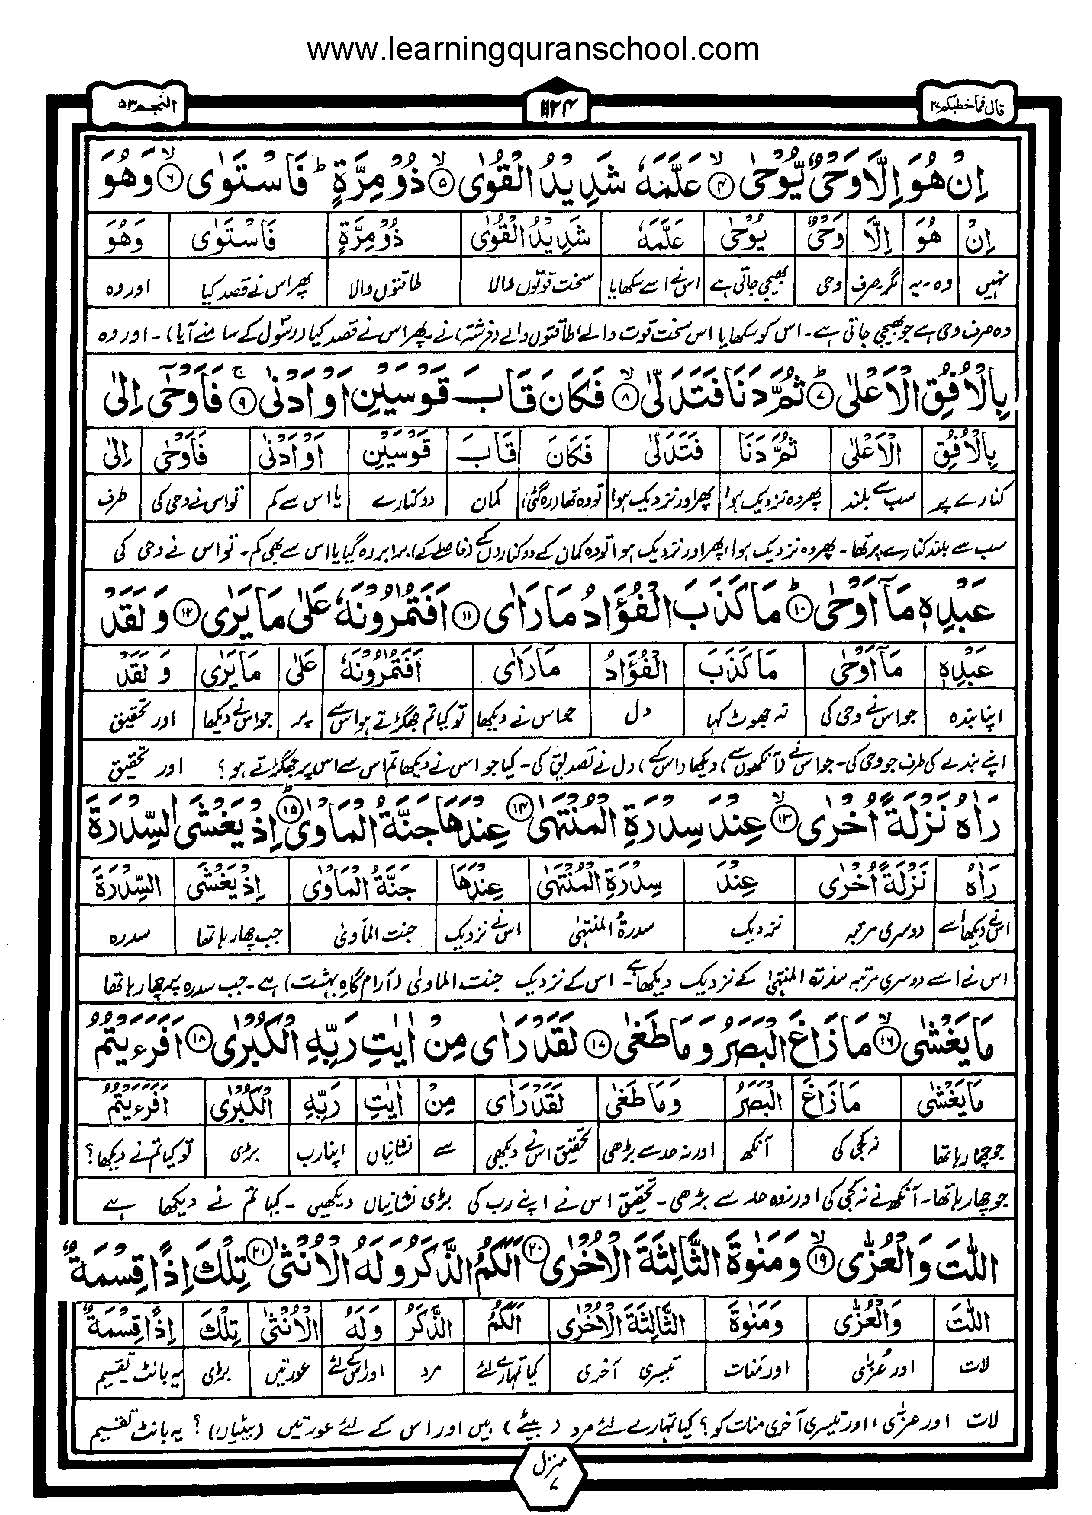 www.learningquranschool.com
قال فما خطبکم ۲۷ ۱۱۲۴ النجم ۵۳
اِنْ هُوَ اِلَّا وَحْیٌ یُّوْحٰی ۴ عَلَّمَهٗ شَدِیْدُ الْقُوٰی ۵ ذُوْ مِرَّةٍ ؕ فَاسْتَوٰی ۶ وَهُوَ
اِنْ هُوَ اِلَّا وَحْیٌ یُوْحٰی عَلَّمَهٗ شَدِیْدُ الْقُوٰی ذُوْ مِرَّةٍ فَاسْتَوٰی وَهُوَ
نہیں وہ۔یہ مگر صرف وحی بھیجی جاتی ہے اس نے اسے سکھایا سخت قوتوں والا طاقتوں والا پھر اس نے قصد کیا اور وہ
وہ صرف وحی ہے جو بھیجی جاتی ہے۔ اس کو سکھایا اس سخت قوت والے طاقتوں والے (فرشتہ) نے پھر اس نے قصد کیا (رسول کے سامنے آیا)۔ اور وہ
بِالْاُفُقِ الْاَعْلٰی ۷ ثُمَّ دَنَا فَتَدَلّٰی ۸ فَکَانَ قَابَ قَوْسَیْنِ اَوْ اَدْنٰی ۹ فَاَوْحٰۤی اِلٰی
بِالْاُفُقِ الْاَعْلٰی ثُمَّ دَنَا فَتَدَلّٰی فَکَانَ قَابَ قَوْسَیْنِ اَوْ اَدْنٰی فَاَوْحٰی اِلٰی
کنارے پر سب سے بلند پھر وہ نزدیک ہوا پھر اور نزدیک ہوا تو وہ تھا (رہ گئی) کمان دو کنارے یا اس سے کم تو اس نے وحی کی طرف
سب سے بلند کنارے پر تھا۔ پھر وہ نزدیک ہوا، پھر اور نزدیک ہوا تو وہ کمان کے دو کناروں کے (فاصلے کے) برابر رہ گیا یا اس سے بھی کم۔ تو اس نے وحی کی
عَبْدِهٖ مَاۤ اَوْحٰی ۱۰ مَا کَذَبَ الْفُؤَادُ مَا رَاٰی ۱۱ اَفَتُمٰرُوْنَهٗ عَلٰی مَا یَرٰی ۱۲ وَ لَقَدْ
عَبْدِهٖ مَاۤ اَوْحٰی مَا کَذَبَ الْفُؤَادُ مَا رَاٰی اَفَتُمٰرُوْنَهٗ عَلٰی مَا یَرٰی وَ لَقَدْ
اپنا بندہ جو اس نے وحی کی نہ جھوٹ کہا دل جو اس نے دیکھا تو کیا تم جھگڑتے ہو اس سے پر جو اس نے دیکھا اور تحقیق
اپنے بندے کی طرف جو وحی کی۔ جو اس نے (آنکھوں سے) دیکھا (اس کے) دل نے تصدیق کی۔ کیا جو اس نے دیکھا تم اس سے اس پر جھگڑتے ہو؟ اور تحقیق
رَاٰهُ نَزْلَةً اُخْرٰی ۱۳ عِنْدَ سِدْرَةِ الْمُنْتَهٰی ۱۴ عِنْدَهَا جَنَّةُ الْمَاْوٰی ۱۵ اِذْ یَغْشَی السِّدْرَةَ
رَاٰهُ نَزْلَةً اُخْرٰی عِنْدَ سِدْرَةِ الْمُنْتَهٰی عِنْدَهَا جَنَّةُ الْمَاْوٰی اِذْ یَغْشَی السِّدْرَةَ
اس نے دیکھا اسے دوسری مرتبہ نزدیک سدرۃ المنتہیٰ اس نے نزدیک جنت الماویٰ جب چھا رہا تھا سدرہ
اس نے اسے دوسری مرتبہ سدرۃ المنتہیٰ کے نزدیک دیکھا ہے۔ اس کے نزدیک جنت الماویٰ (آرام گاہ بہشت) ہے۔ جب سدرہ پر چھا رہا تھا
مَا یَغْشٰی ۱۶ مَا زَاغَ الْبَصَرُ وَ مَا طَغٰی ۱۷ لَقَدْ رَاٰی مِنْ اٰیٰتِ رَبِّهِ الْکُبْرٰی ۱۸ اَفَرَءَیْتُمُ
مَا یَغْشٰی مَا زَاغَ الْبَصَرُ وَمَا طَغٰی لَقَدْ رَاٰی مِنْ اٰیٰتِ رَبِّهِ الْکُبْرٰی اَفَرَءَیْتُمُ
جو چھا رہا تھا نہ کجی کی آنکھ اور نہ حد سے بڑھی تحقیق اس نے دیکھی سے نشانیاں اپنا رب بڑی تو کیا تم نے دیکھا؟
جو چھا رہا تھا۔ آنکھ نے نہ کجی کی اور نہ وہ حد سے بڑھی۔ تحقیق اس نے اپنے رب کی بڑی نشانیاں دیکھیں۔ کیا تم نے دیکھا ہے
اللّٰتَ وَالْعُزّٰی ۱۹ وَ مَنٰوةَ الثَّالِثَةَ الْاُخْرٰی ۲۰ اَلَکُمُ الذَّکَرُ وَ لَهُ الْاُنْثٰی ۲۱ تِلْکَ اِذًا قِسْمَةٌ
اللّٰتَ وَالْعُزّٰی وَمَنٰوةَ الثَّالِثَةَ الْاُخْرٰی اَلَکُمُ الذَّکَرُ وَ لَهُ الْاُنْثٰی تِلْکَ اِذًا قِسْمَةٌ
لات اور عُزّٰی اور منات تیسری آخری کیا تمہارے لئے مرد اور اس کے لئے عورتیں بڑی یہ بانٹ تقسیم
لات اور عزّٰی، اور تیسری آخری منات کو؟ کیا تمہارے لئے مرد (بیٹے) ہیں اور اس کے لئے عورتیں (بیٹیاں)؟ یہ بانٹ تقسیم
منزل ۷